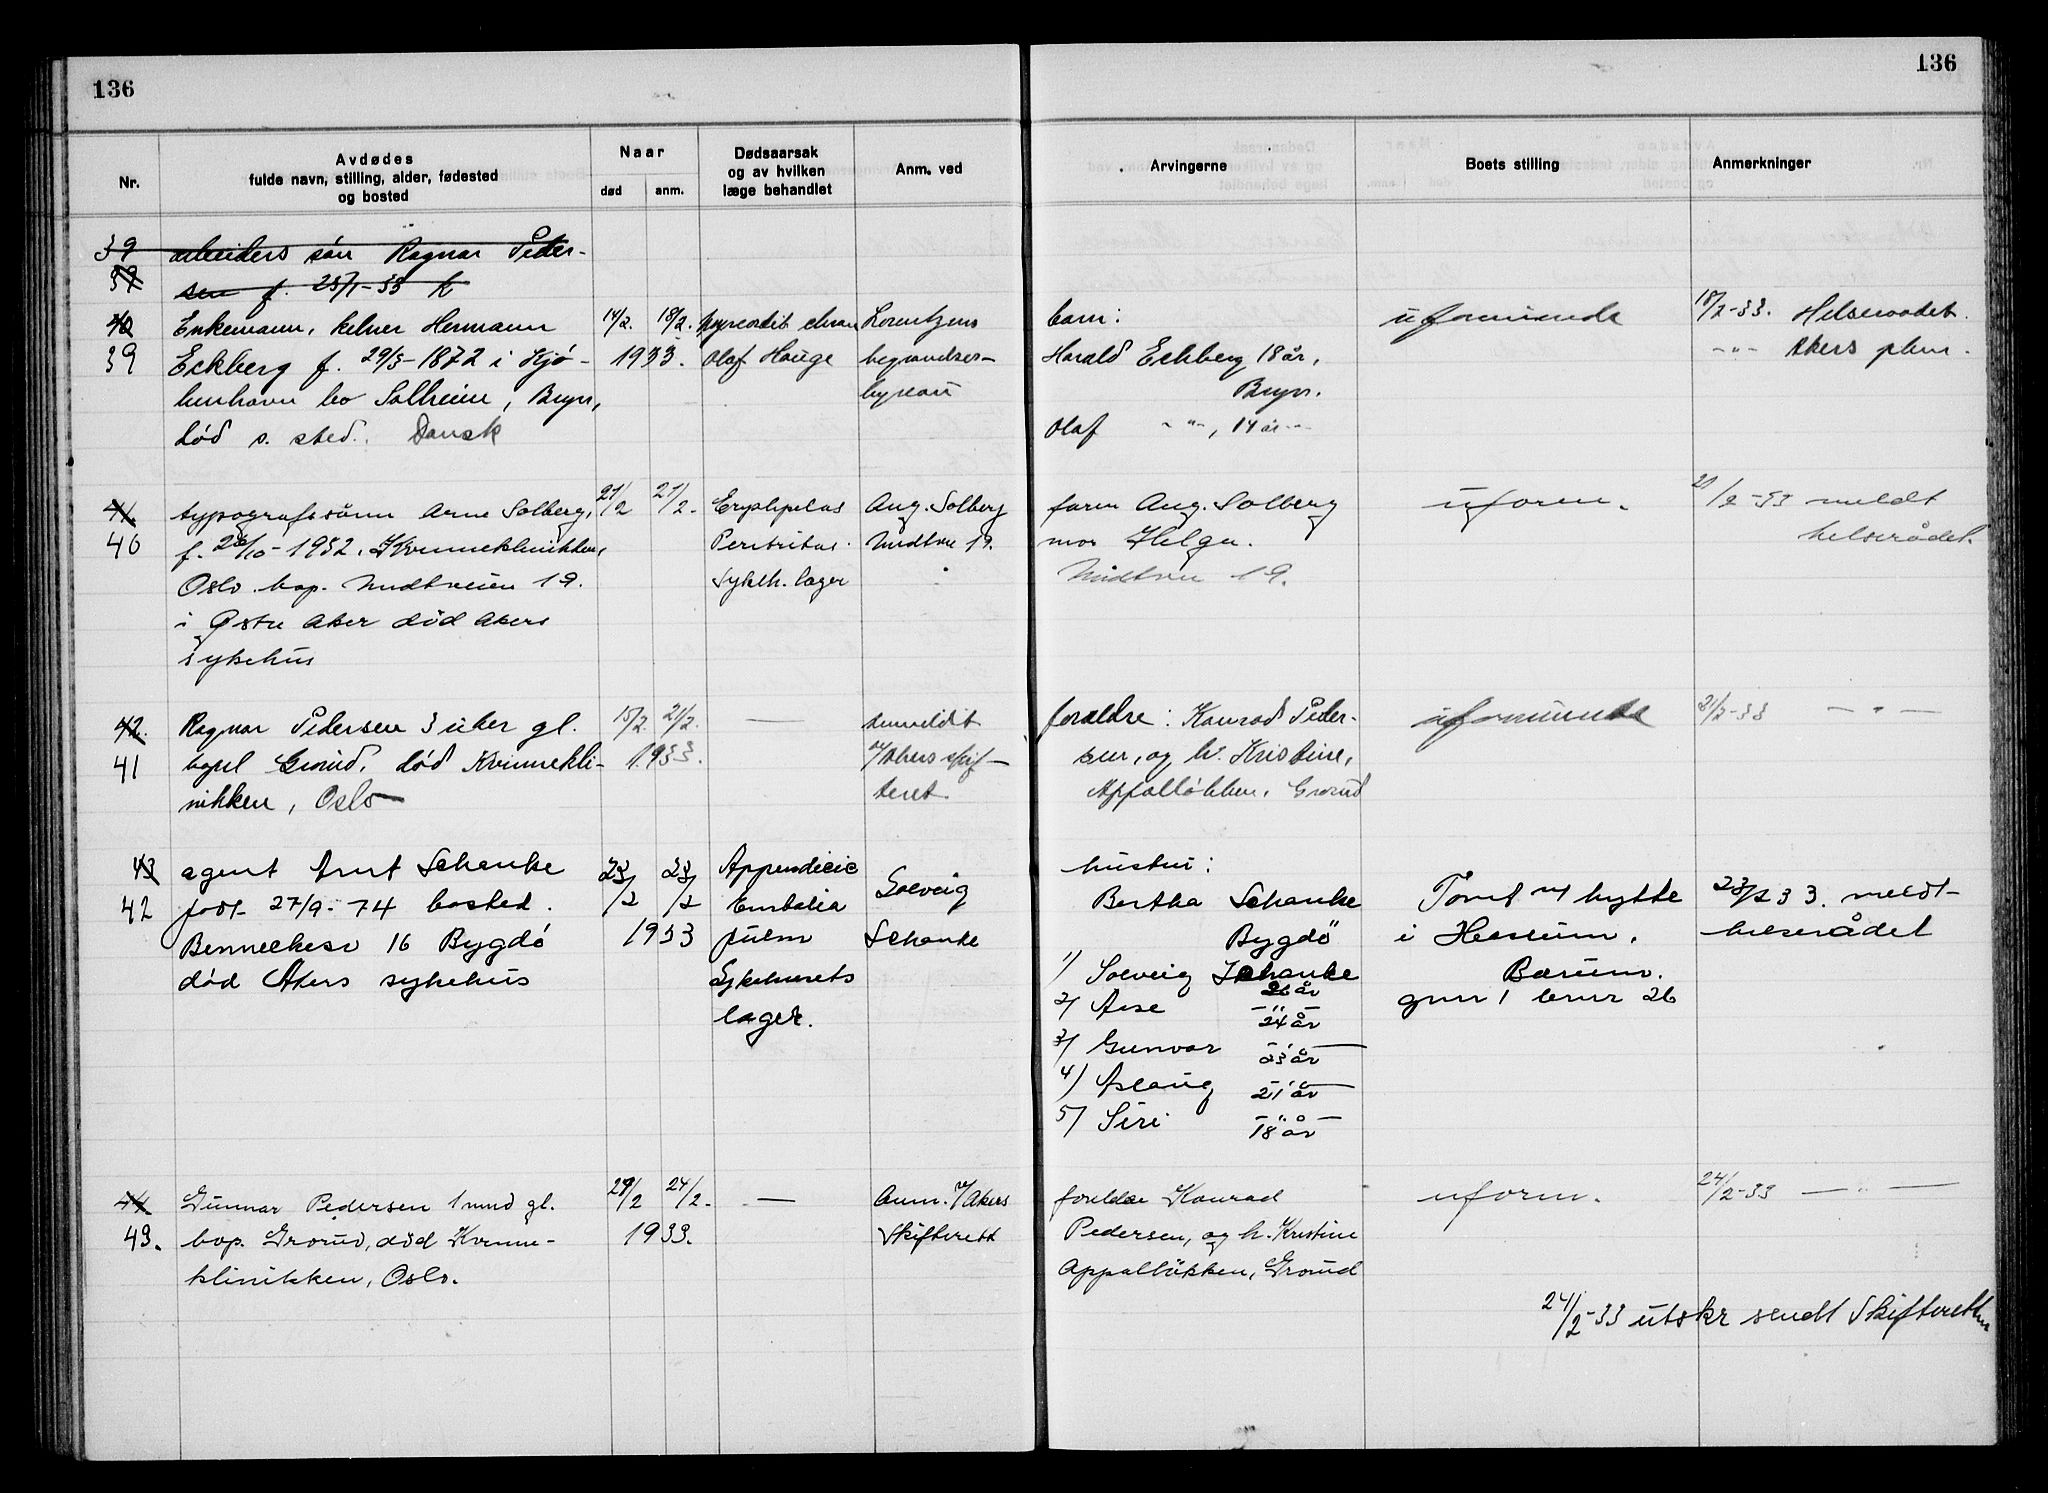 136
136
Nr.
Avdødes
fulde navn, stilling, alder, fødested
og bosted
Naar
død
anm.
Dødsaarsak
og av hvilken
læge behandlet
Anm. ved
Arvingerne
Boets stilling
Anmerkninger
39 arbeiders sön Ragnar Peder-
sen f. 25/1-33
40 Enkemann, kelner Hermann 14/2. 18/2. Lorentzens barn: uformuende 18/2-33. Helseraadet.
39 Eckberg f. 29/3-1872 i Kjø- 1933. Olaf Hauge begravelses- Harald Eckberg 18 år, -"- Akers
benhavn bo Solheim, Bryn, byrau Bryn.
död s. sted. Dansk Olaf -"-, 14 år -"-
41. typografssönn Arne Solberg, 21/2 21/2. Erysipelas Aug. Solberg faren Aug. Solberg uform. 21/2-33 meldt
40 f. 26/10-1932, Kvinneklinikken, Peritonitis. Midtvn 19. mor Helga. helserådet.
Oslo. bop. Midtveien 19. Sykeh. læger Midtvn 19.
i Østre Aker död Akers
sykehus
42. Ragnar Pedersen 3 uker gl. 15/2. 21/2. — anmeldt foreldre: Konrad Peder- uformuende 21/2-33 — " —
41 bopel Grorud, död Kvinnekli- 1933. v/Akers skif- sen, og h. Kristine,
nikken, Oslo teret. Appalløkken, Grorud
43 agent Arnt Schanke 23/2 23/2 Appendicit hustru:
42 født 27/9-74 bosted. 1933 Embolia Solveig Bertha Schanke Tomt m/ hytte 23/2 33. meldt
Bennechesv 16 Bygdö pulm Schanke Bygdö i Hessum, helserådet
död Akers sykehus Sykehusets 1) Solveig Schanke 26 år Bærum.
læger. 2) Aase -"- 24 år gnr 1 bnr 26
3) Gunvor -"- 23 år
4) Aslaug -"- 21 år
5) Siri -"- 18 år
44 Gunnar Pedersen 1 mnd gl. 24/2. — Anm. v/Akers foreldre Konrad uform. 24/2-33 — " —
43. bop. Grorud, død Kvinne- 1933. Skifterett Pedersen, og h. Kristine
klinikken, Oslo. Appalløkken, Grorud
24/2-33 utskr sendt Skifteretten